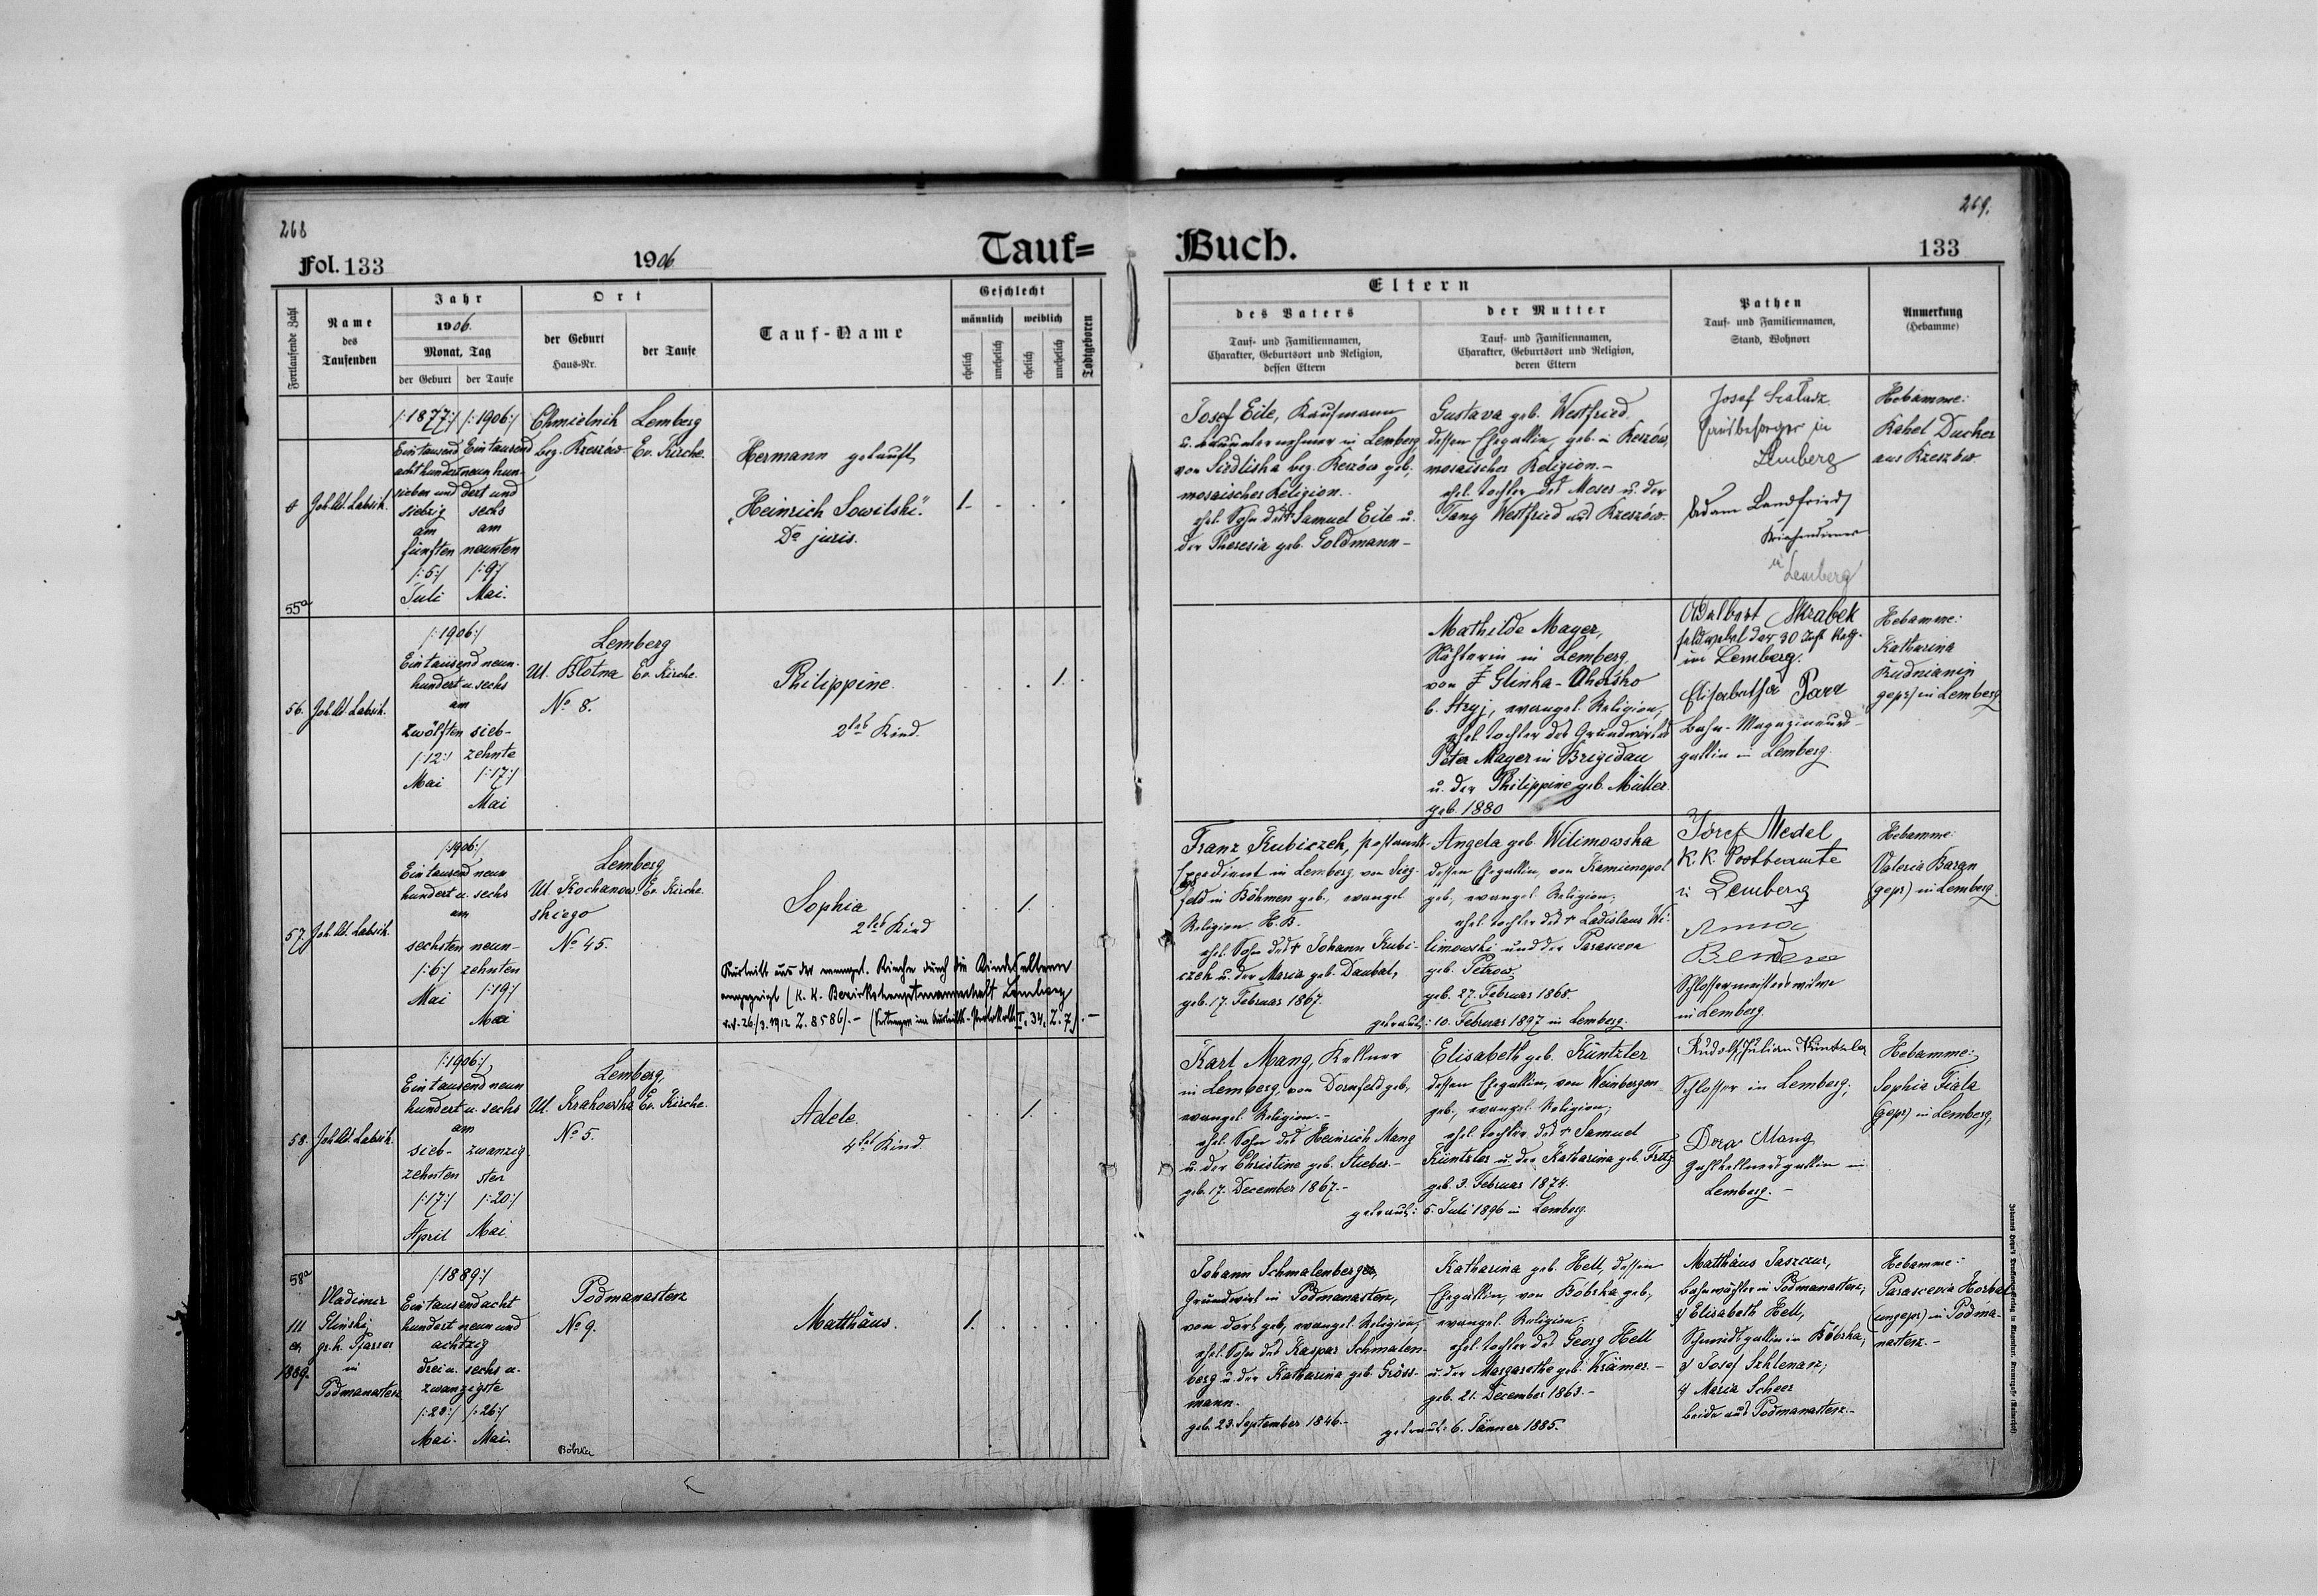 268
269.
Fol. 133
1906
Tauf=
Buch.
133
Fortlaufende Zahl
Name
des
Taufenden
Jahr
1906.
Monat, Tag
der Geburt
der Taufe
Ort
der Geburt
Haus-Nr.
der Taufe
Tauf-Name
Geschlecht
männlich
weiblich
ehelich
unehelich
ehelich
unehelich
Todtgeboren
Eltern
des Vaters
Tauf- und Familiennamen,
Charakter, Geburtsort und Religion,
dessen Eltern
der Mutter
Tauf- und Familiennamen,
Charakter, Geburtsort und Religion,
deren Eltern
Pathen
Tauf- und Familiennamen,
Stand, Wohnort
Anmerkung
(Hebamme)
55a
/:1877:/ /:1906:/
Ein tausend Ein tausend
acht hundert neun hun-
sieben und dert und
siebzig sechs
am am
fünften neunten
/:5:/ /:9:/
Juli Mai.
Chmielnik
bez. Rzeszów
Lemberg
Ev. Kirche.
Hermann getauft
"Heinrich Sowilski"
Dr juris.
1.
Josef Eile, Kaufmann
u. Bauunternehmer in Lemberg
von Siedliska bez. Rzeszów geb.,
mosaischer Religion.
ehel. Sohn des Samuel Eile u.
der Theresia geb. Goldmann –
Gustava geb. Westfried
dessen Ehegattin, geb. in Rzeszów,
mosaischer Religion. –
ehel. Tochter des Moses u. der
Westfried aus Rzeszów.
Josef
in
Lemberg
Adam Landfried
Kirchendiener
in Lemberg
Hebamme:
Rahel Ducker
aus Rzeszów.
56.
/:1906:/
Ein tausend neun-
hundert u. sechs
am
zwölften sieb-
/:12:/ zehnte
Mai /:17:/
Mai
Lemberg
Ul. Blotna Ev. Kirche.
No 8.
Philippine.
2tes Kind.
1.
Mathilde Mayer,
Nähterin in Lemberg
von
b. Stryj, evangel. Religion,
ehel. Tochter des Grundwirtes
Peter Mayer in Brigidau
u. der Philippine geb. Müller.
geb. 1880
Adalbert Skrabek
Feldwebel der 30 Inft. Reg.
in Lemberg.
Elisabetha Parr
Bahn-
gattin in Lemberg.
Hebamme:
Katharina
Rudnianin
gepr) in Lemberg
57.
/:1906:/
Ein tausend neun
hundert u. sechs
am
sechsten neun-
/:6:/ zehnten
Mai /:19:/
Mai
Lemberg,
Ul. Kochanow- Ev. Kirche.
skiego
No 45.
Sophia
2tes Kind
Austritt aus der evangel. Kirche durch die Kindeseltern
angezeigt (K. K. Bezirkshauptmannschaft Lemberg
v. 26./3. 1912 Z. 8586/. –
1.
Franz Kubiczek, Postamts-
Expedient in Lemberg von Sieg-
feld in Böhmen geb., evangel.
Religion. H. B.
ehel. Sohn des † Johann Kubi-
czek u. der Maria geb. Daubal,
geb. 17. Februar 1867.
Angela geb. Wilimowska
dessen Ehegattin, von Kamienopol
geb., evangel. Religion,
ehel. Tochter des † Ladislaus Wi-
limowski und der Parasceva
geb. Petrow,
geb. 27. Februar 1868.
getraut: 10. Februar 1897 in Lemberg.
Józef Medel
K. K. Postbeamte
in Lemberg
Anna
Bender
Schlossermeisterswitwe
in Lemberg.
Hebamme:
Valeria Baran
(gepr) in Lemberg
58.
/:1906:/
Ein tausend neun
hundert u. sechs
am
sieb- zwanzig
zehnten sten
/:17:/ /:20:/
April Mai.
Lemberg,
Ul. Krakowska Ev. Kirche.
No 5.
Adele.
4tes Kind.
1.
Karl Mang, Kellner
in Lemberg, von Dornfeld geb.,
evangel. Religion. –
ehel. Sohn des Heinrich Mang
u. der Christine geb. Stieber. –
geb. 17. December 1867. –
Elisabeth geb. Küntzler
dessen Ehegattin, von Weinbergen
geb., evangel. Religion;
ehel. Tochter des † Samuel
Küntzler u. der Katharina geb. Fritz
geb. 3. Februar 1874.
getraut: 5. Juli 1896 in Lemberg.
Rudolf Julian Küntzler
Schlosser in Lemberg;
Dora Mang
Zahlkellnersgattin in
Lemberg. –
Hebamme:
Sophia Fiala
(gepr) in Lemberg,
58a
111
ex
1889.
Vladimir
Slinski,
gr. k. Pfarrer
in
Podmanasterz
/:1889:/
Ein tausend acht
hundert neun und
achtzig
drei u. sechs u.
zwanzigste
/:23:/ /:26:/
Mai. Mai.
Podmanasterz
No 9.
Bóbrka
Matthäus.
1.
Johann Schmalenberger,
Grundwirt in Podmanasterz,
von dort geb., evangel. Religion;
ehel. Sohn des Kaspar Schmalen-
berg u. der Katharina geb. Gröss-
mann.
geb. 23. September 1846. –
Katharina geb. Hell, dessen
Ehegattin, von Bóbrka geb.,
evangel. Religion.
ehel. Tochter des Georg Hell
u. der Margarethe geb. Krämer. –
geb. 21. December 1863. –
getraut: 6. Jänner 1885.
Matthäus Taszczur,
Bahnwächter in Podmanasterz;
2) Elisabeth Hell,
Schmiedsgattin in Bóbrka;
3) Josef Szklenarz;
4) Maria Scheer
beide aus Podmanasterz. –
Hebamme:
Parascevia Horbal
(ungepr) in Podma-
nasterz. –